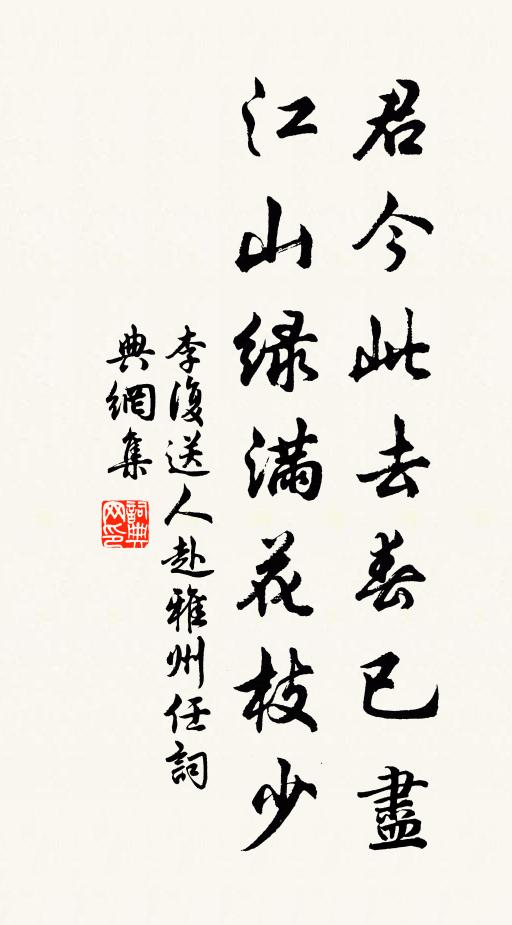 君今此去春已盡
江山綠滿花枝少
李復送人赴雅州任詞
典網集
詞典網印